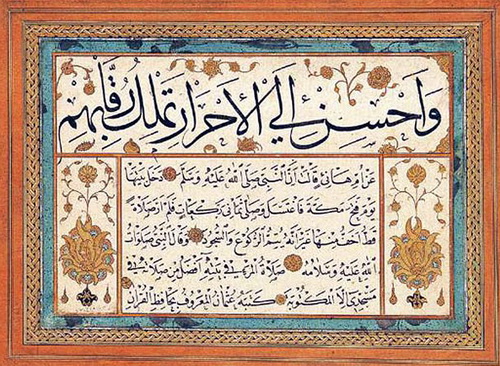 وَاَحْسِنْ اِلَي الْاَحْرَارِ تَمْلِكْ رِقَابَهُمْ
عن ام هانئ قالت ان النبي صلى الله عليه وسلم دخل بيتها
يوم فتح مكة فاغتسل وصلى ثماني ركعات فلم ار صلاة
قط اخف منها غير انه يتم الركوع والسجود وقال النبي صلوات
الله عليه وسلامه صلاة المرء في بيته افضل من صلاته في
مسجدي هذا الا المكتوبة كتبه عثمان المعروف بحافظ القران